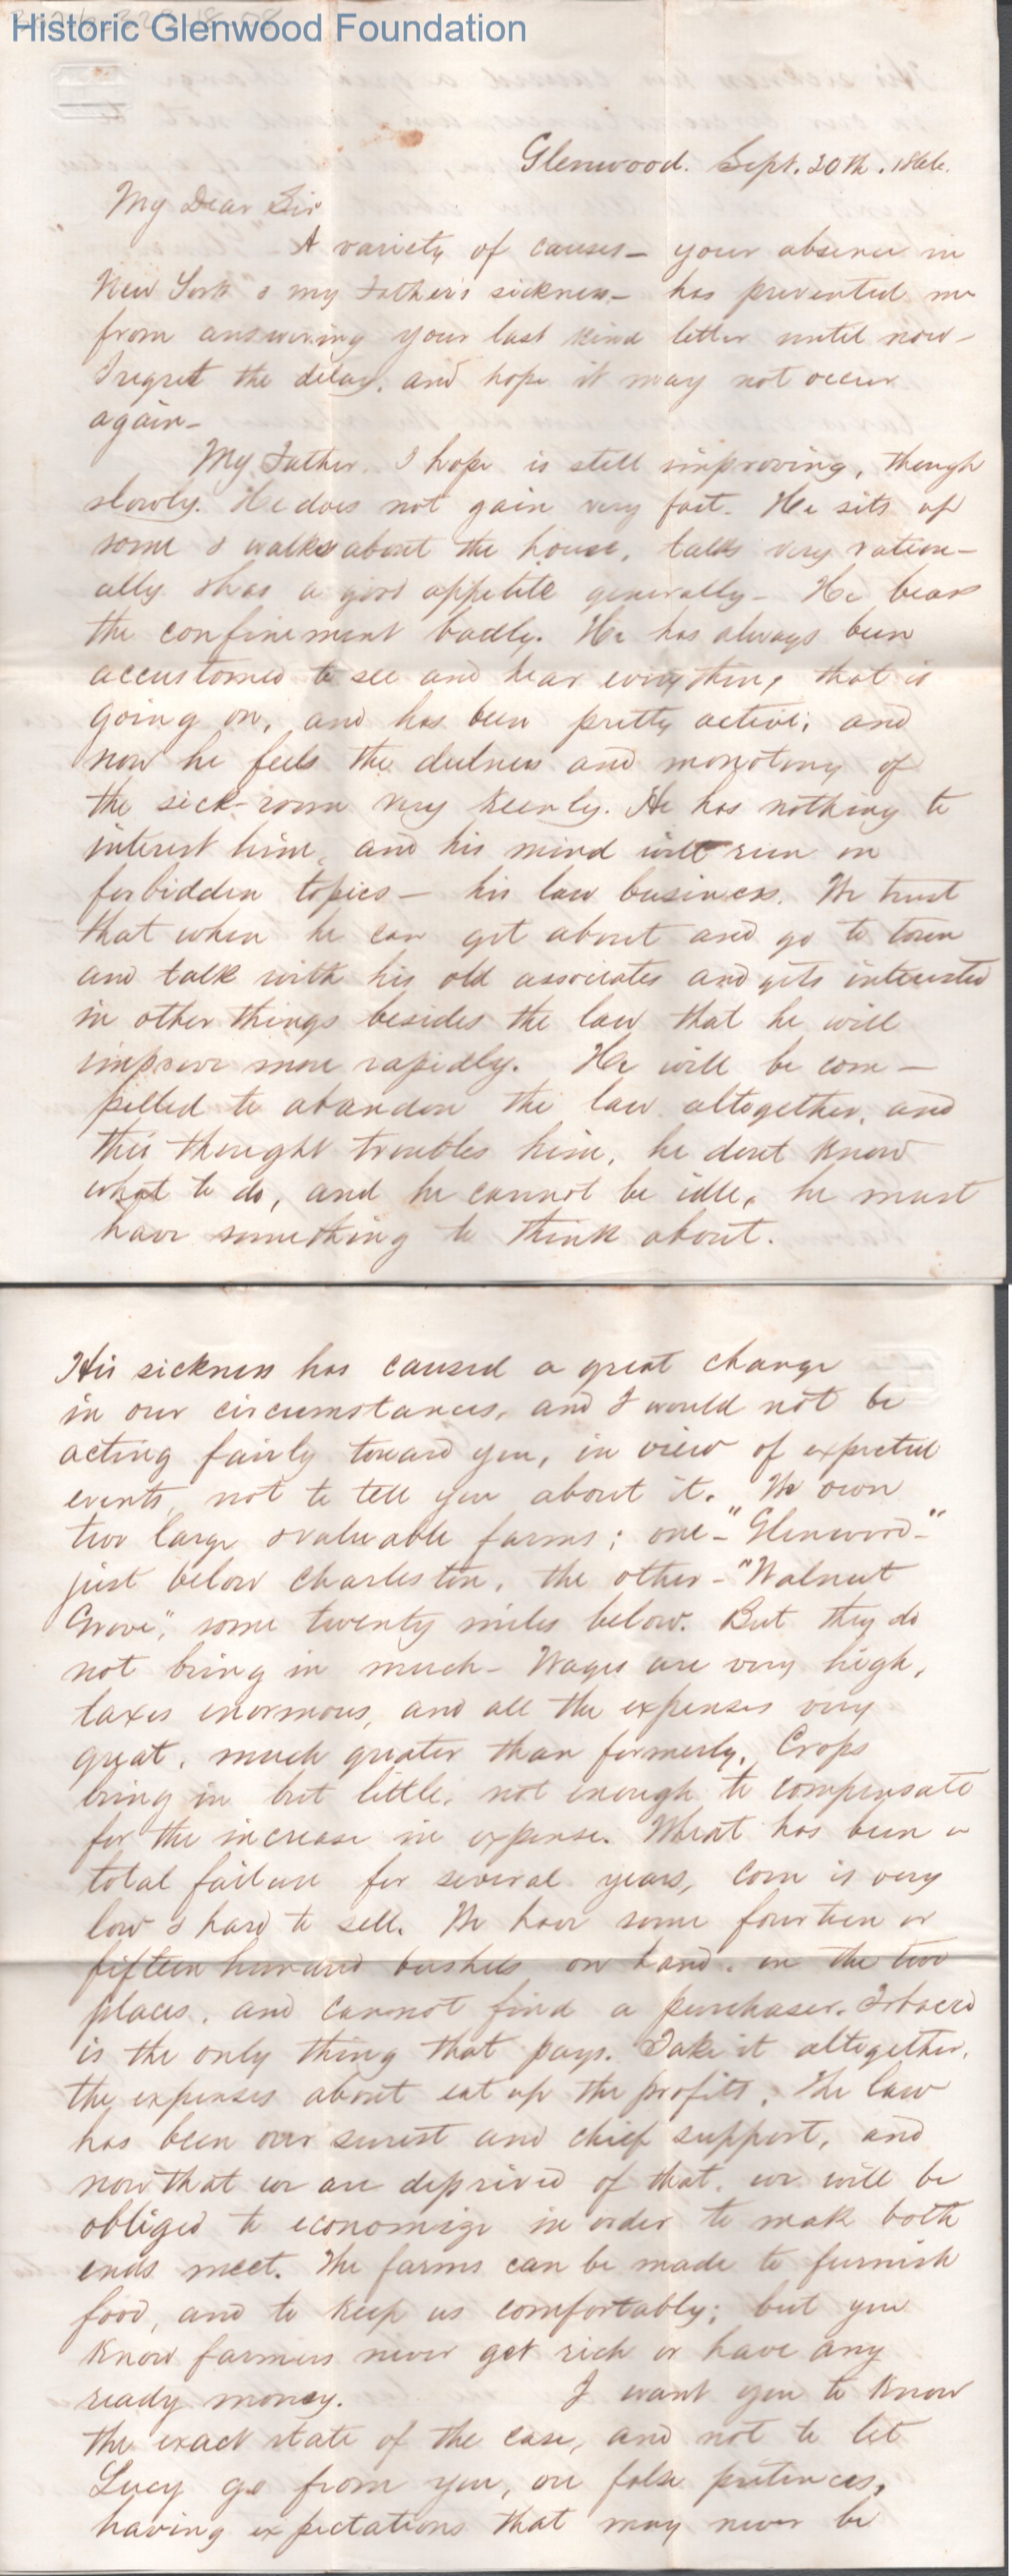 Historic Glenwood Foundation
Glenwood. Sept. 20th. 1866.
My Dear Sir
A variety of causes - your absence in
New York & my Father's sickness - has prevented me
from answering your last kind letter until now -
I regret the delay, and hope it may not occur
again -
My Father I hope is still improving, though
slowly. He does not gain very fast. He sits up
some & walks about the house, talks very ration-
ally & has a good appetite generally - He bears
the confinement badly. He has always been
accustomed to see and hear everything that is
going on, and has been pretty active, and
now he feels the dulness and monotony of
the sick-room very keenly. He has nothing to
interest him, and his mind will run on
forbidden topics - his law business. We trust
that when he can get about and go to town
and talk with his old associates and gets interested
in other things besides the law that he will
improve more rapidly. He will be com-
pelled to abandon the law altogether, and
this thought troubles him, he dont know
what to do, and he cannot be idle, he must
have something to think about.
His sickness has caused a great change
in our circumstances, and I would not be
acting fairly toward you, in view of expected
events, not to tell you about it. We own
two large & valuable farms; one - "Glenwood" -
just below Charleston, the other - "Walnut
Grove", some twenty miles below. But they do
not bring in much - Wages are very high,
taxes enormous, and all the expenses very
great, much greater than formerly. Crops
bring in but little, not enough to compensate
for the increase in expense. Wheat has been a
total failure for several years, corn is very
low & hard to sell. We have some fourteen or
fifteen hundred bushels on hand, on the two
places, and cannot find a purchaser. Tobacco
is the only thing that pays. Take it altogether,
the expenses about eat up the profits. The law
has been our surest and chief support, and
now that we are deprived of that, we will be
obliged to economize in order to make both
ends meet. The farms can be made to furnish
food, and to keep us comfortably; but you
know farmers never get rich or have any
ready money. I want you to know
the exact state of the case, and not to let
Lucy go from you, on false pretences,
having expectations that may never be